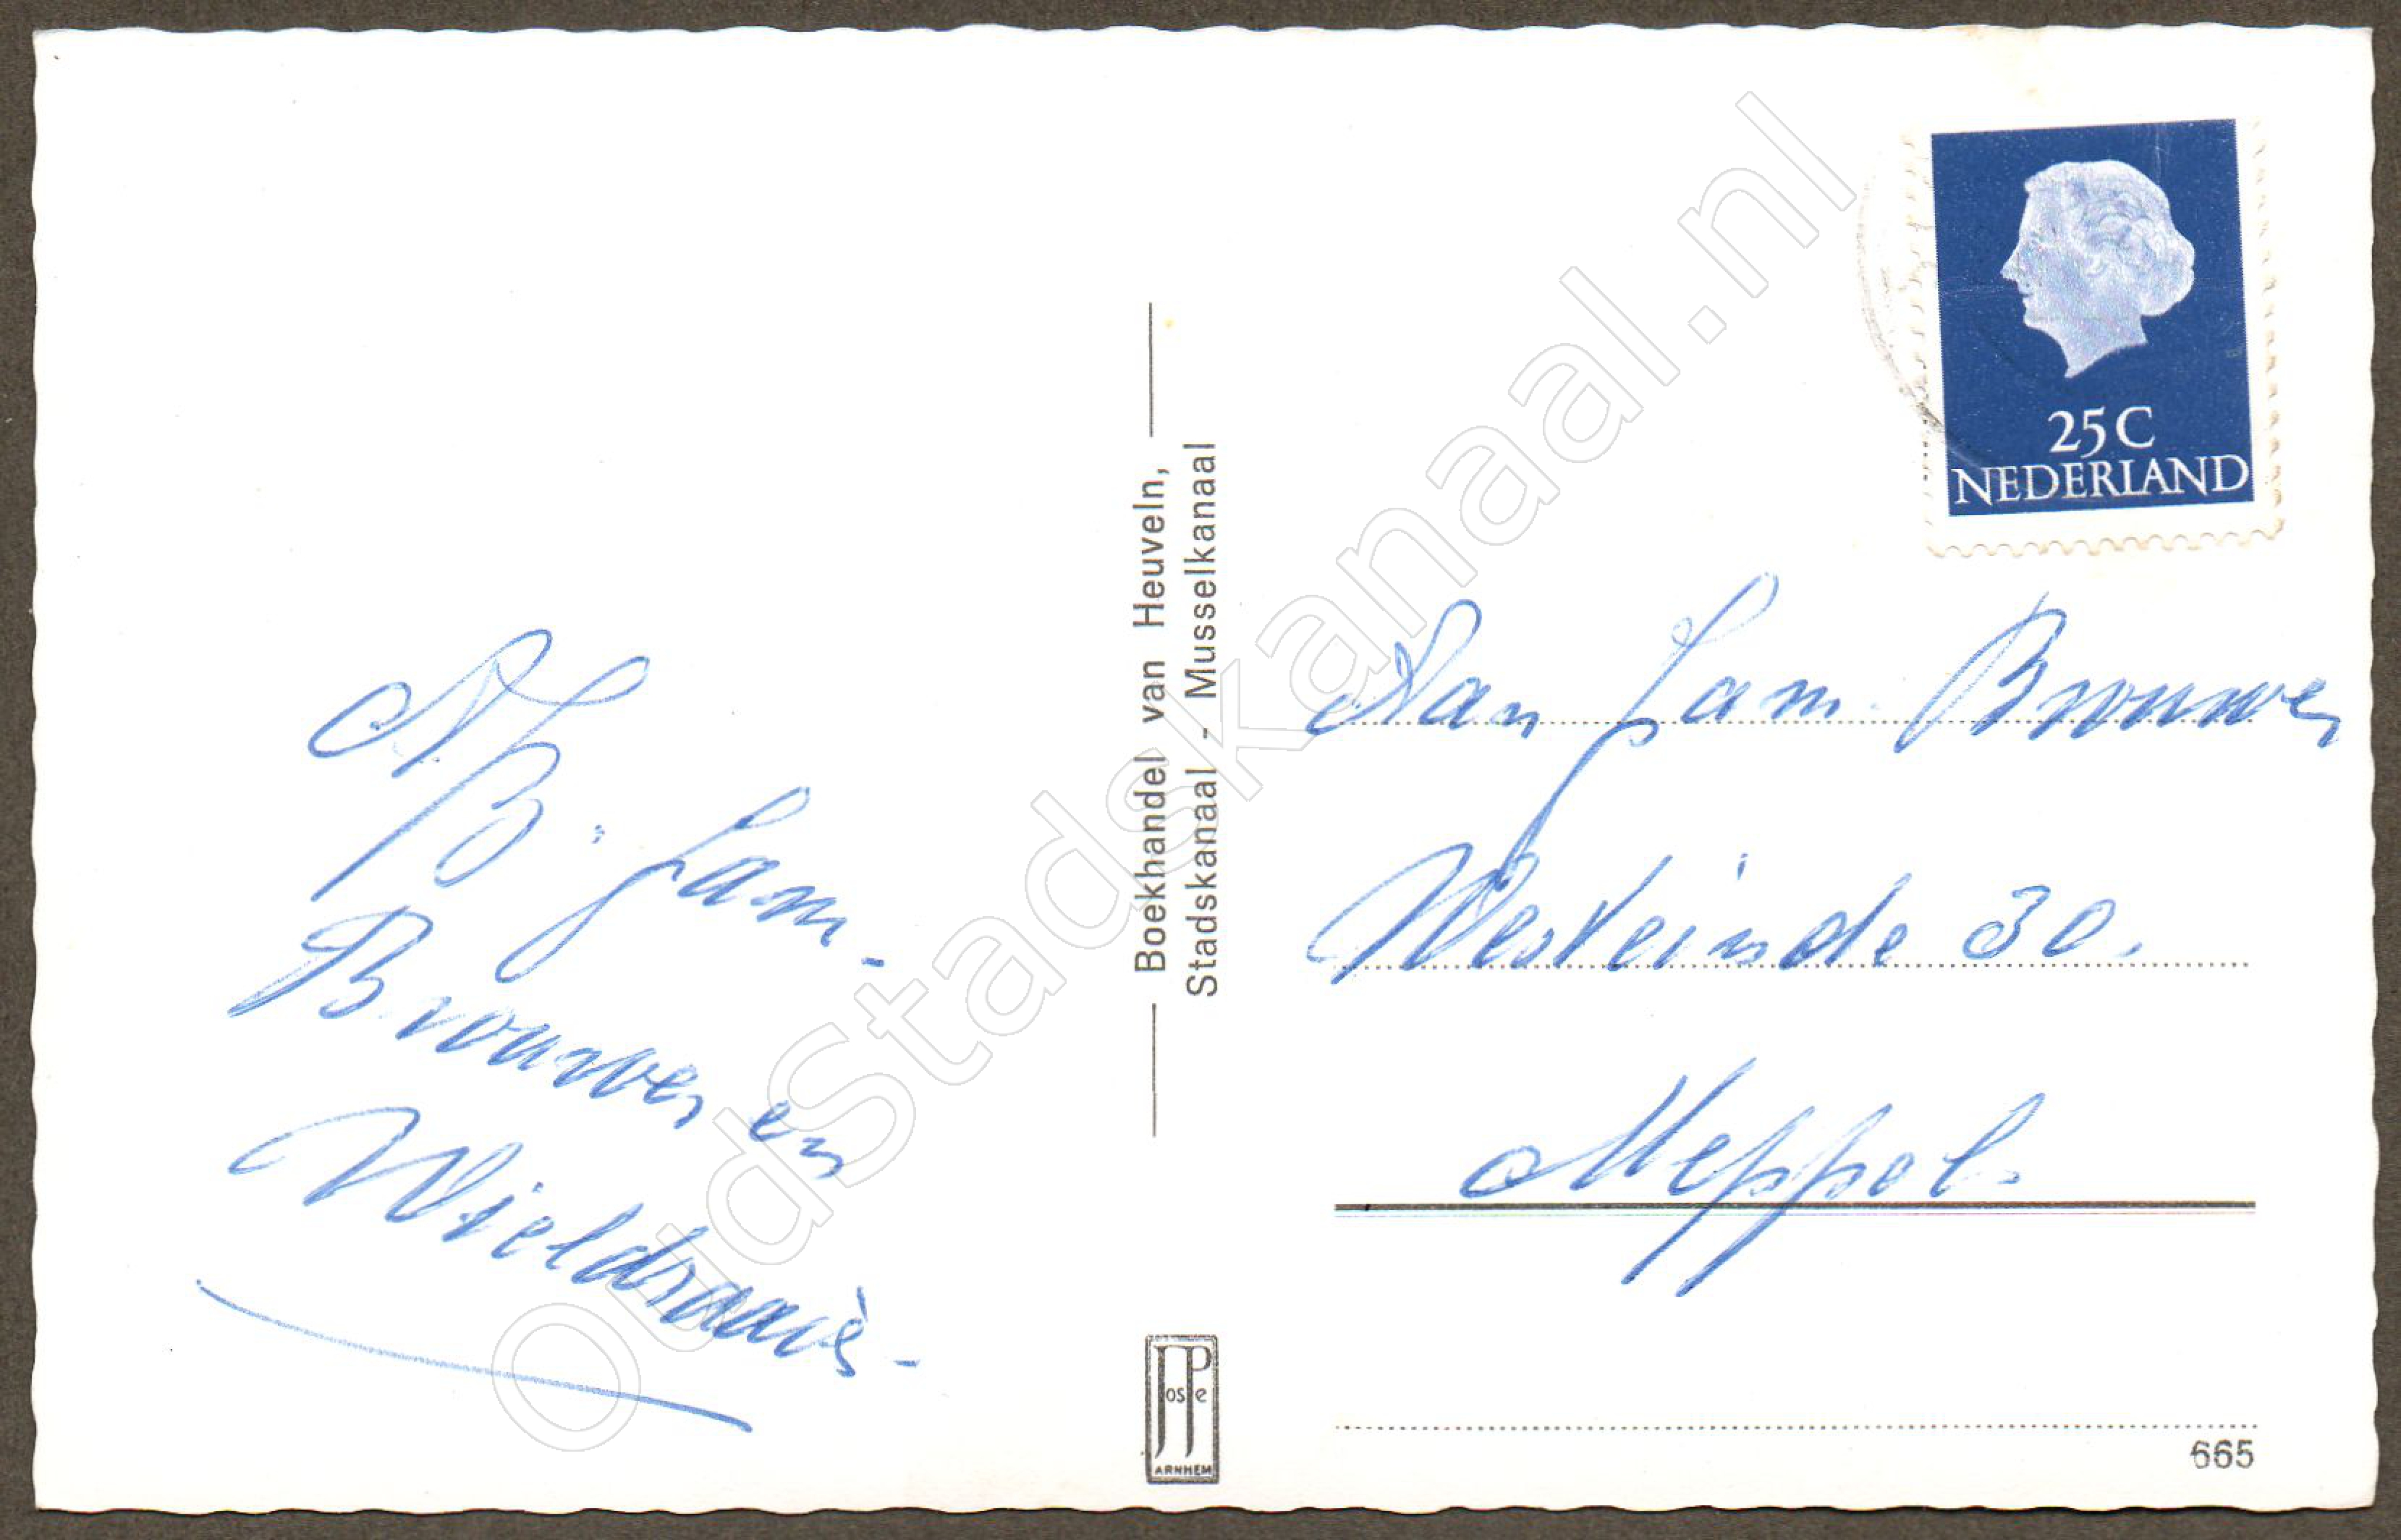 A.
B. fam.
Brouwer en
Boekhandel van Heuveln,
Stadskanaal - Musselkanaal
25 C
NEDERLAND
Aan fam. Brouwer
Westeinde 30.
Meppel.
JosPe
ARNHEM
665
OudStadskanaal.nl